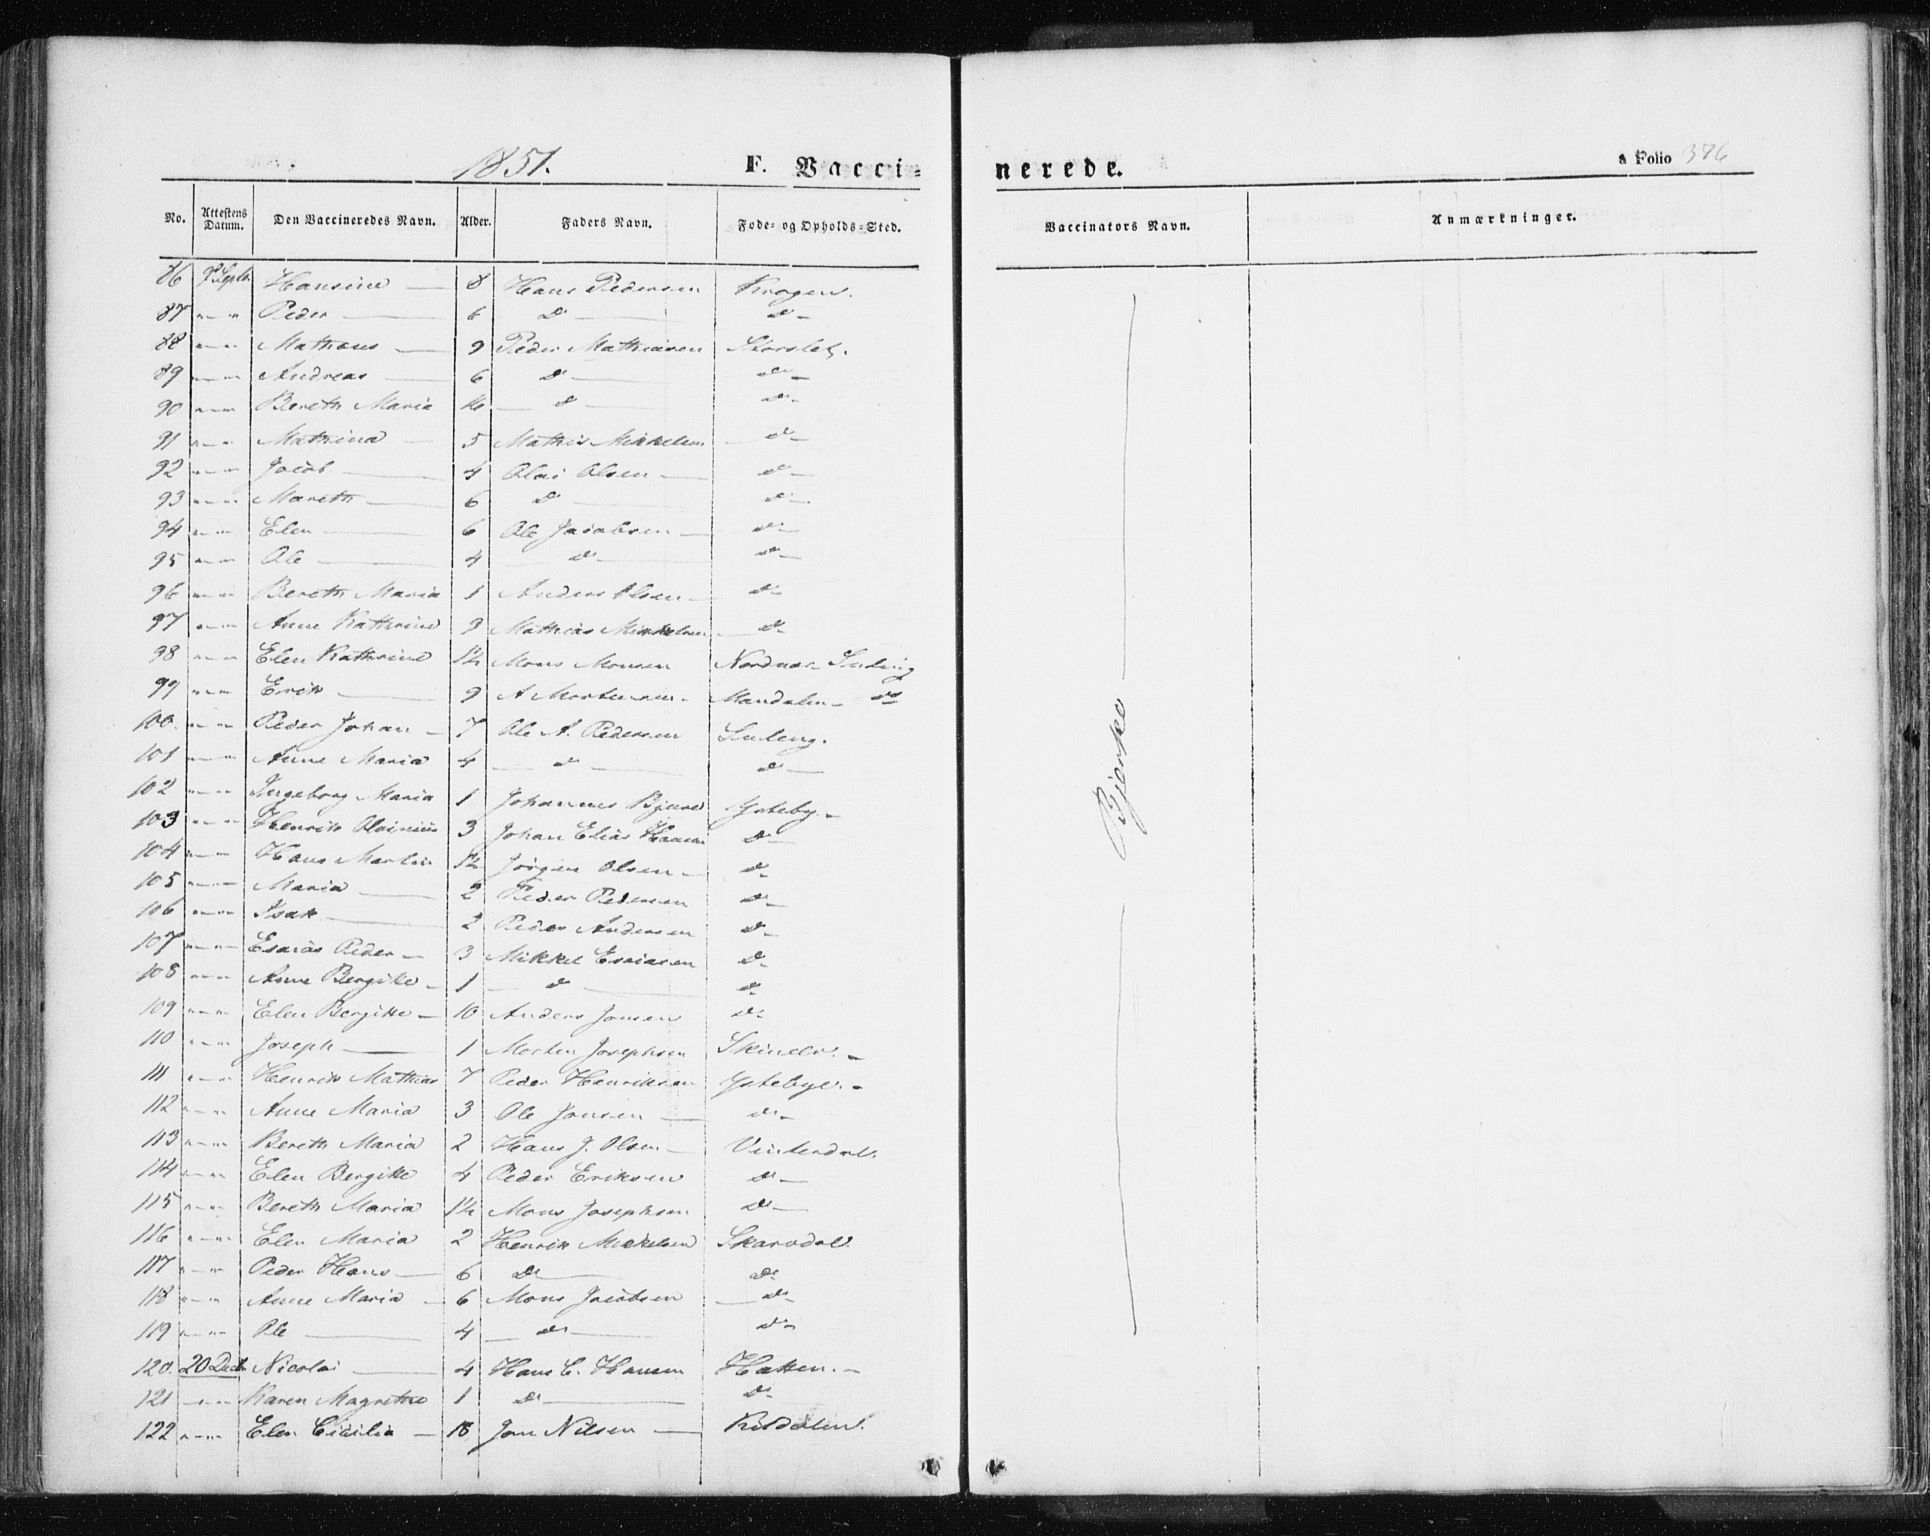 1851. F. Vacci-
nerede. a Folio 376
No. Attestens Datum. Den Vaccineredes Navn. Alder. Faders Navn. Føde- og Opholds-Sted. Vaccinators Navn. Anmærkninger.
86 Septb. Hansine — 8 Hans Pedersen Kragen.
87 " — " Peder — 6 D° — D° —
88 " — " Matheus — 9 Peder Mathiasen Storslet.
89 " — " Andreas — 6 D° — D° —
90 " — " Bereth Maria D° — D° —
91 " — " Mathina — 5 Mathis Mikkelsen — D° —
92 " — " Jacob — 4 Olai Olsen — D° —
93 " — " Mareth — 6 D° — D° —
94 " — " Elen — 6 Ole Jacobsen — D° —
95 " — " Ole — 4 — D° — D° —
96 " — " Bereth Maria 1 Anders Olsen — D° —
97 " — " Anne Kathrine 9 Mathias Mikkelsen — D° —
98 " — " Elen Kathrine 1½ Mons Monsen Nordnæs
99 " — " Erik — 9 A Mortensen — Mandalen — D°
100. " — " Peder Johan — 7 Ole A. Pedersen
101 " — " Anne Maria 4 — D° — D° —
102 " — " Ingeborg Maria 1 Johannes Ysteby. —
103 " — " Henrik Olainius 3 Johan Elias Hansen D° —
104 " — " Hans Martin 1½ Jørgen Olsen — D° —
105 " — " Maria — 2 Peder Pedersen D° —
106 " — " Isak — 2 Peder Andersen D° —
107 " — " Esaias Peder — 3 Mikkel Esaiasen D° —
108 " — " Anne Bergitte — 1 — D° — D° —
109 " — " Elen Bergitte — 10 Anders Jonsen D° —
110 " — " Joseph — 1 Morten Josephsen Skinelv. —
111 " — " Henrik Mathias 7 Peder Henriksen Ystebye. —
112 " — " Anne Maria 3 Ole Jonsen — D° —
113 " — " Bereth Maria 2 Hans J. Olsen — Vinterdal.
114 " — " Elen Bergitte 4 Peder Eriksen D° —
115 " — " Bereth Maria 1½ Mons Josephsen D° —
116 " — " Elen Maria 2 Henrik Mikkelsen Skarvdal.
117 " — " Peder Hans — 6 D° — D° —
118 " — " Anne Maria — 6 Mons Jacobsen — D° —
119 " — " Ole — 4 — D° — D° —
120. 20 Decb. Nicolai — 4 Hans C. Hansen Hatten. —
121 " — " Karen Magrethe 1 D° — D° —
122 " — " Elen Cicilia — 18 Jon Nilsen — Kitdalen.
— Bjerke —